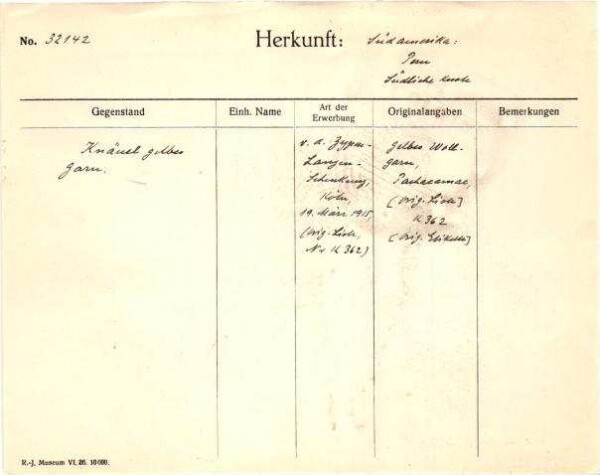 No. 32142
Herkunft: Südamerika:
Peru
Südliche Küste
Gegenstand
Einh. Name
Art der
Erwerbung
Originalangaben
Bemerkungen
Knäuel gelbes
Garn.
v. d. Zypen-
Langen-
Schenkung,
Köln,
19. März 1915,
(orig. Liste,
Nr K 362)
gelbes Woll-
garn,
Pachacamac,
(orig. Liste)
K 362
(orig. Etikette)
R.-J. Museum VI. 26. 10000.